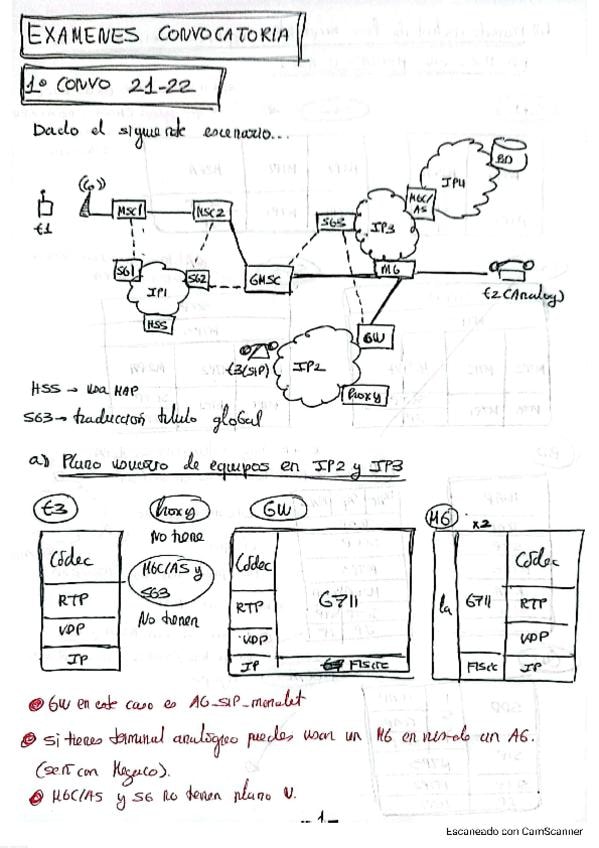 EXAMENES CONVOCATORIA
1º CONVO 21-22
Dado el siguiente escenario...
BD
IP4
MGC/
AS
MSC1
MSC2
SG3
IP3
t1
SG1
SG2
GMSC
MG
IP1
t2 (Analog)
HSS
GW
t3(SIP)
IP2
Proxy
HSS → usa MAP
SG3 → traducción título global
a) Plano usuario de equipos en IP2 y IP3
t3
Proxy
GW
MG x2
No tiene
Códec
MGC/AS y
SG3
Códec
G711
la
G711
Códec
RTP
No tienen
RTP
RTP
UDP
UDP
UDP
IP
IP
FÍSICC
FISCC
IP
GW en este caso es AG_SIP_
si tienes terminal analógico puedes usar un MG en vez de un AG.
(será con Megaco).
MGC/AS y SG no tienen plano U.
- 1 -
Escaneado con CamScanner